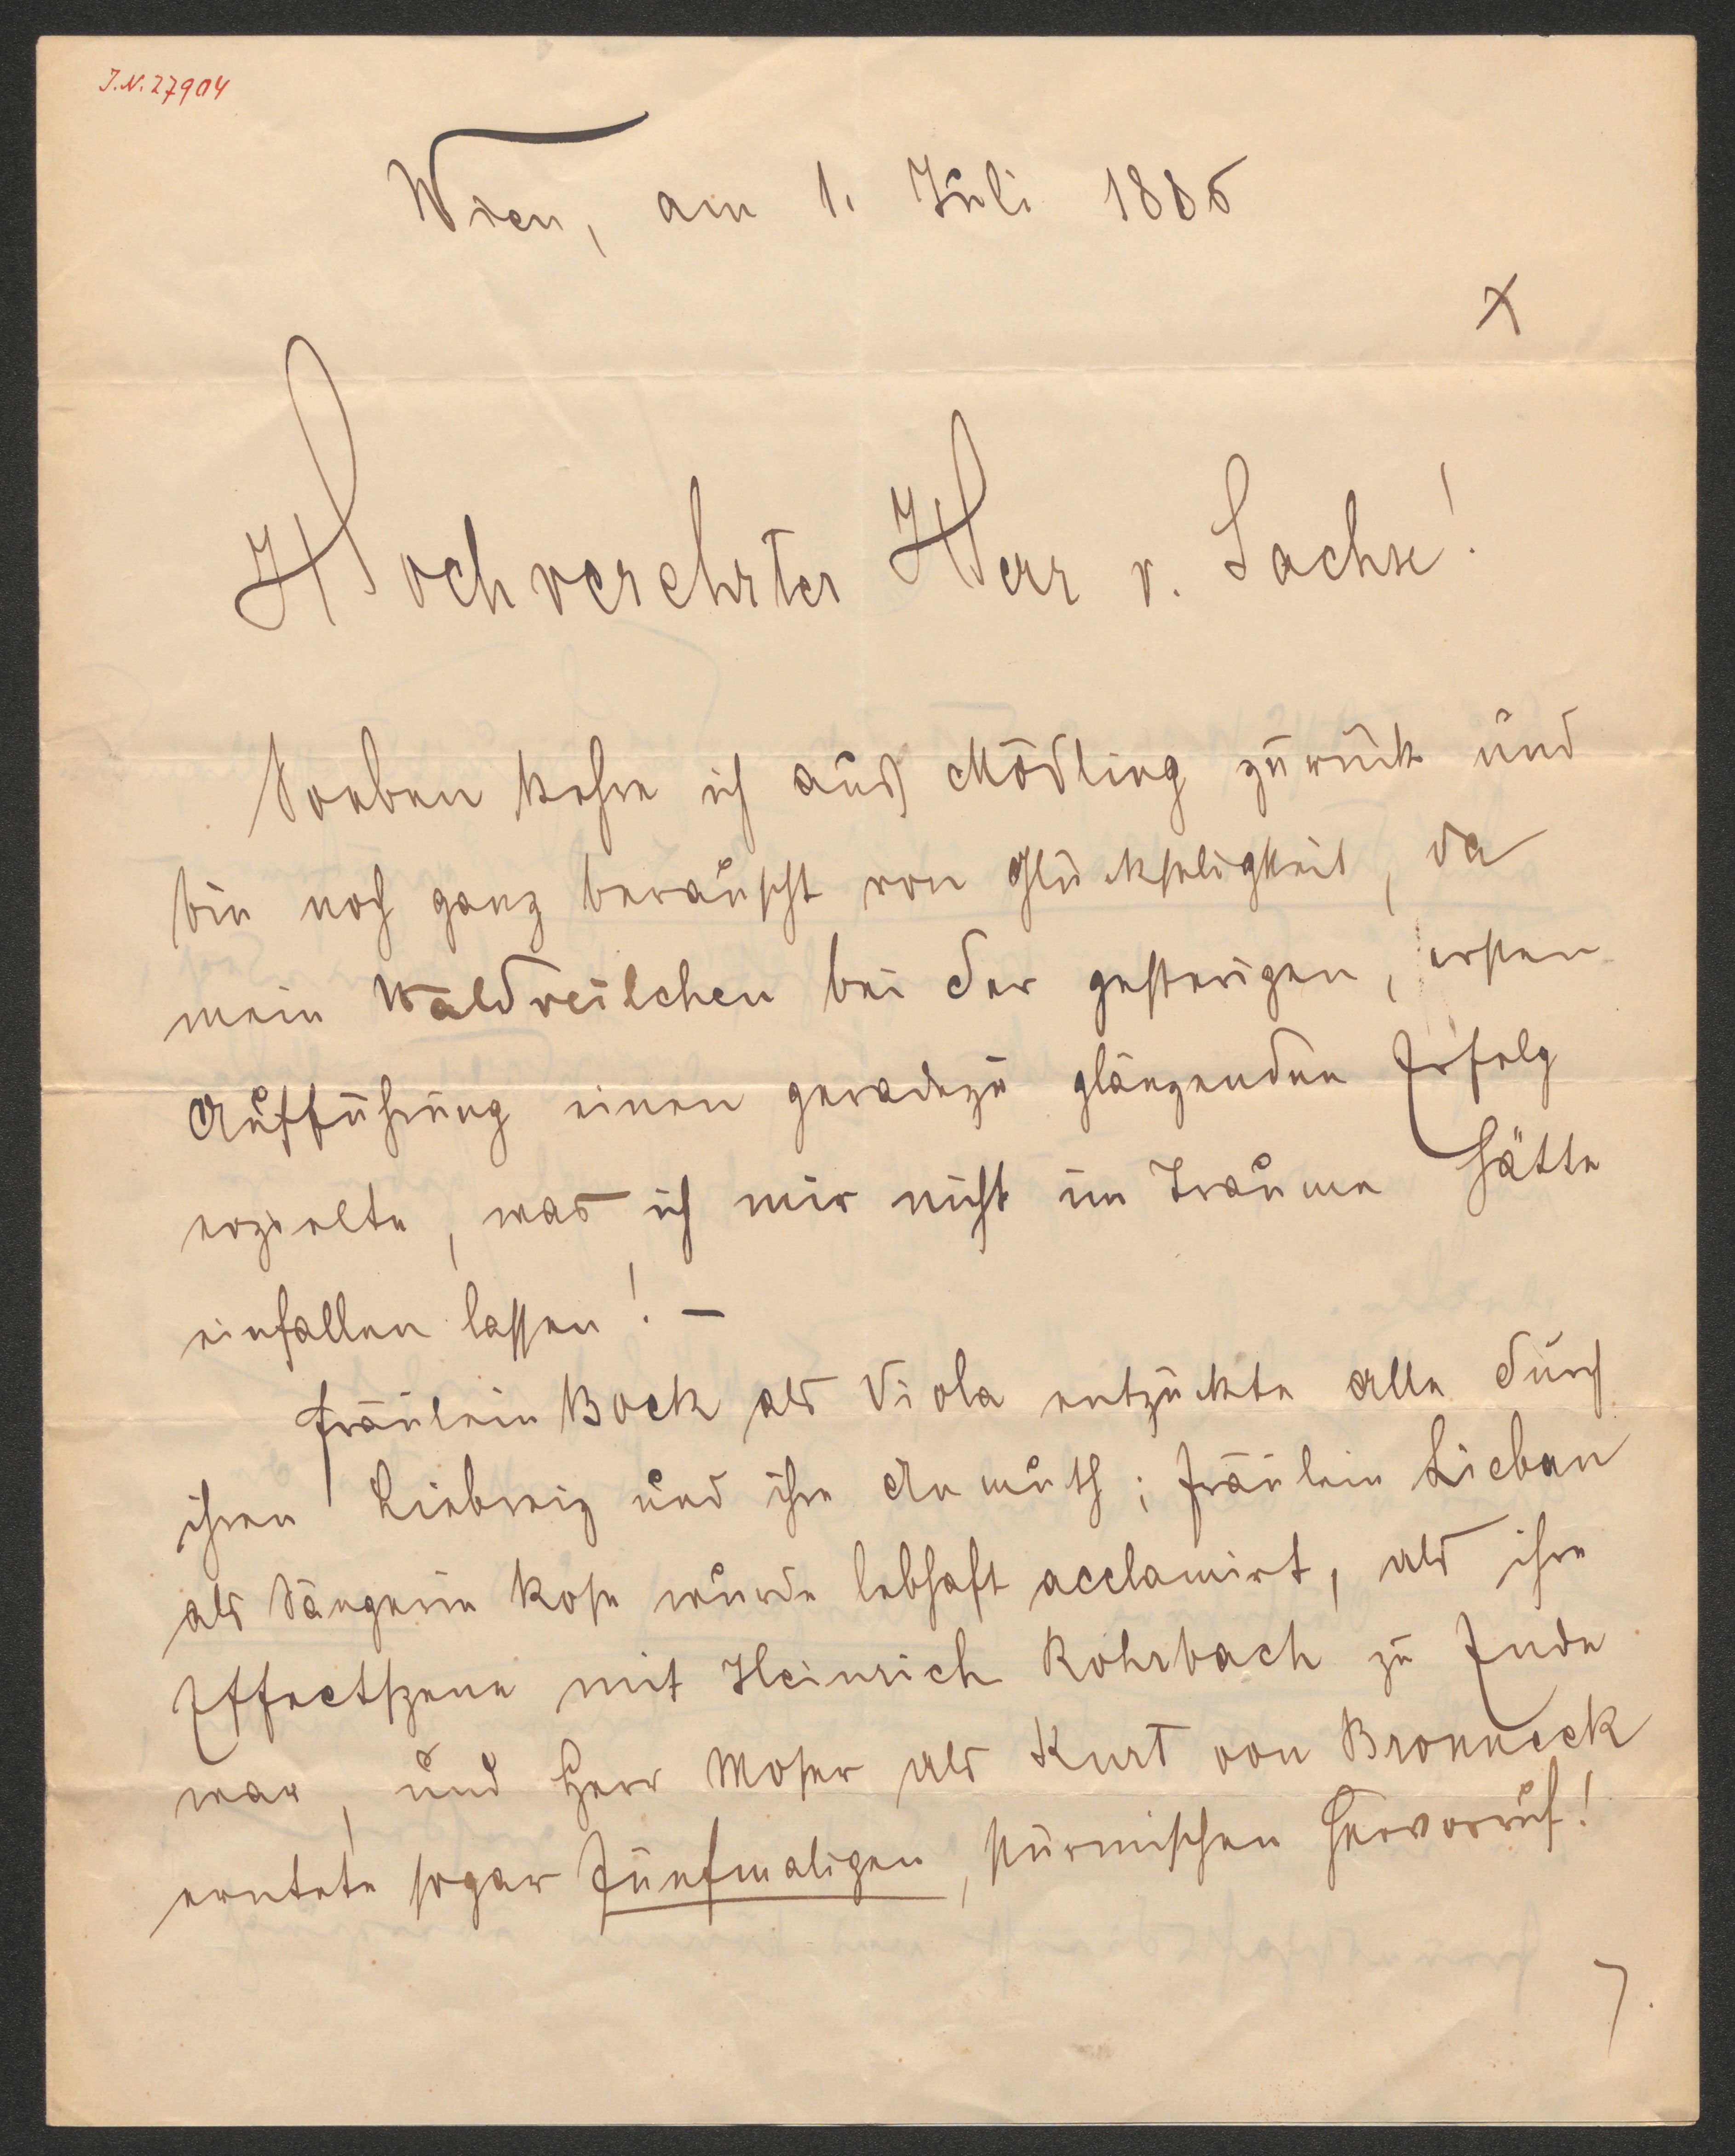 J.N. 27904
Wien, am 1. Juli 1886
x
Hochverehrter Herr v. Sachse!
Soeben kehre ich aus Mödling zurück und
bin noch ganz berauscht von Glückseligkeit, da
mein Waldveilchen bei der gestrigen, ersten
Aufführung einen geradezu glänzenden Erfolg
erzielte, was ich mir nicht im Traume hätte
einfallen lassen! –
Fräulein Bock als Viola entzückte alle durch
ihren Liebreiz und ihre Anmuth; Fräulein Lieban
als Sängerin Rose wurde lebhaft acclamirt, als ihre
Effectszene mit Heinrich Rohrbach zu Ende
war, und Herr Moser als Kurt von Bronneck
erntete sogar fünfmaligen, stürmischen Hervorruf!